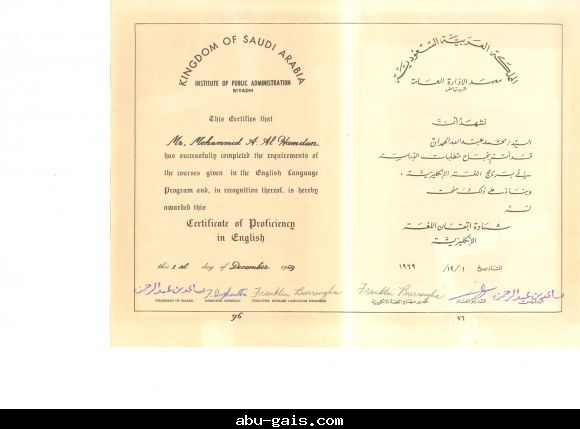 KINGDOM OF SAUDI ARABIA
INSTITUTE OF PUBLIC ADMINISTRATION
RIYADH
This Certifies that
Mr. Mohammed A. Al Hamdan
has successfully completed the requirements of
the courses given in the English Language
Program and, in recognition thereof, is hereby
awarded this
Certificate of Proficiency
in English
this 1 st day of December 1969
Franklin Burroughs
CHAIRMAN OF BOARD DIRECTOR GENERAL DIRECTOR ENGLISH LANGUAGE PROGRAM
76
المملكة العربية السعودية
معهد الإدارة العامة
الرياض
نشهد أن
السيد/ محمد عبدالله الحمدان
قد أتم بنجاح متطلبات الدراسة
في برنامج اللغة الإنكليزية .
وبناء على ذلك منحت
له
شهادة إتقان اللغة
الإنكليزية
التاريخ ١ /١٢/ ١٩٦٩
Franklin Burroughs
٧٦
abu-gais.com